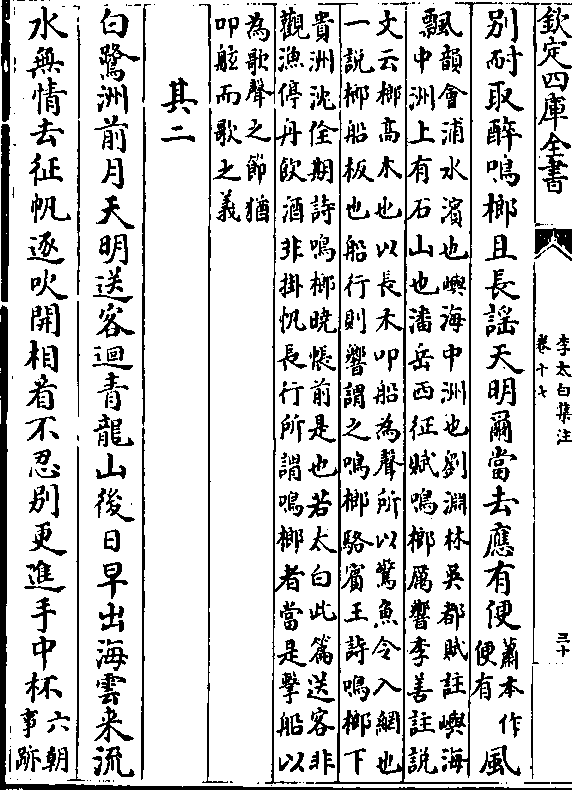 欽定四庫全書
李太白集注
卷十七
三十
别耐取醉鳴榔且長謡天明爾當去應有便蕭本作便有風
飄韻會浦水濱也嶼海中洲也劉淵林吳都賦註嶼海
中洲上有石山也潘岳西征賦鳴榔厲響李善註説
文云榔高木也以長木叩船為聲所以驚魚令入網也
一説榔船板也船行則響謂之鳴榔駱賓王詩鳴榔下
貴洲沈佺期詩鳴榔曉帳前是也若太白此篇送客非
觀漁停舟飲酒非掛帆長行所謂鳴榔者當是擊船以
為歌聲之節猶
叩舷而歌之義
其二
白鷺洲前月天明送客迴青龍山後日早出海雲来流
水無情去征帆逐吹開相看不忍别更進手中杯六朝事跡